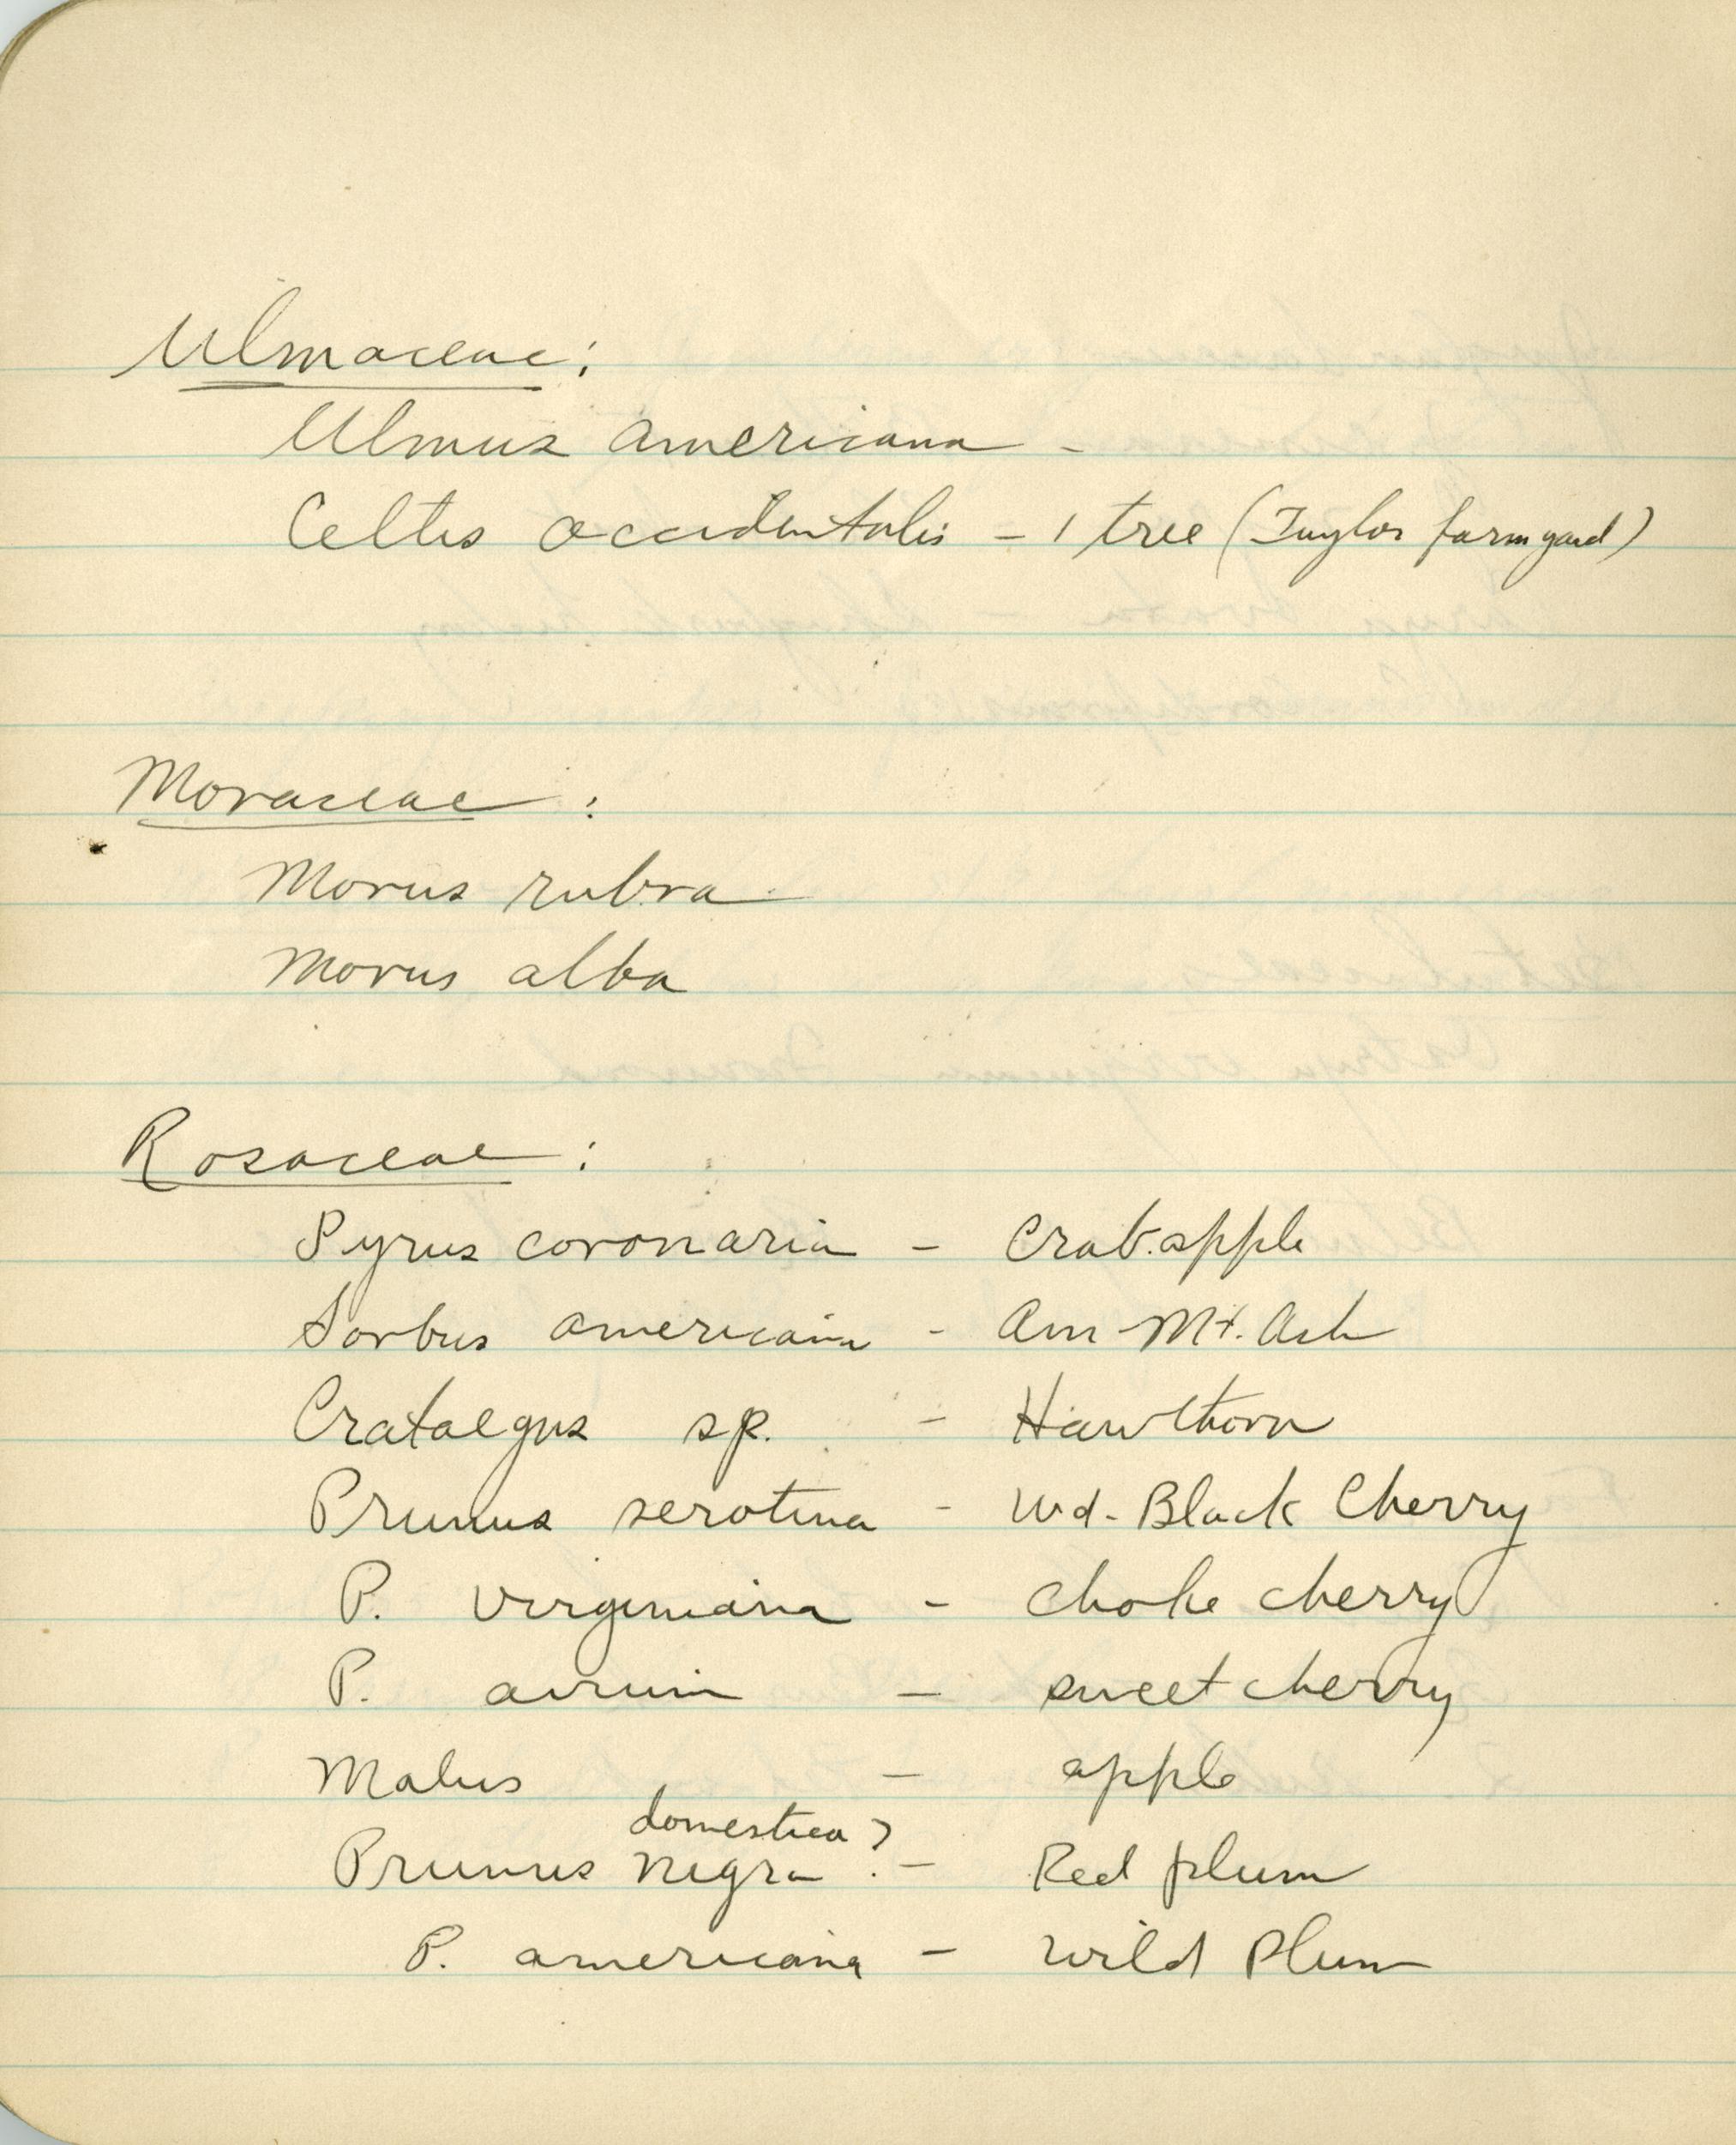 Ulmaceae:
Ulmus americana -
Celtis occidentalis - 1 tree (Taylor farmyard)
Moraceae:
Morus rubra
Morus alba
Rosaceae:
Pyrus coronaria - Crab.apple
Sorbus americana - Am-Mt. Ash
Crataegus sp. - Hawthorn
Prunus serotina - Wd-Black Cherry
P. virginiana - choke cherry
P. avium - sweet cherry
Malus - apple
domestica?
Prunus nigra - Red plum
P. americana - wild Plum